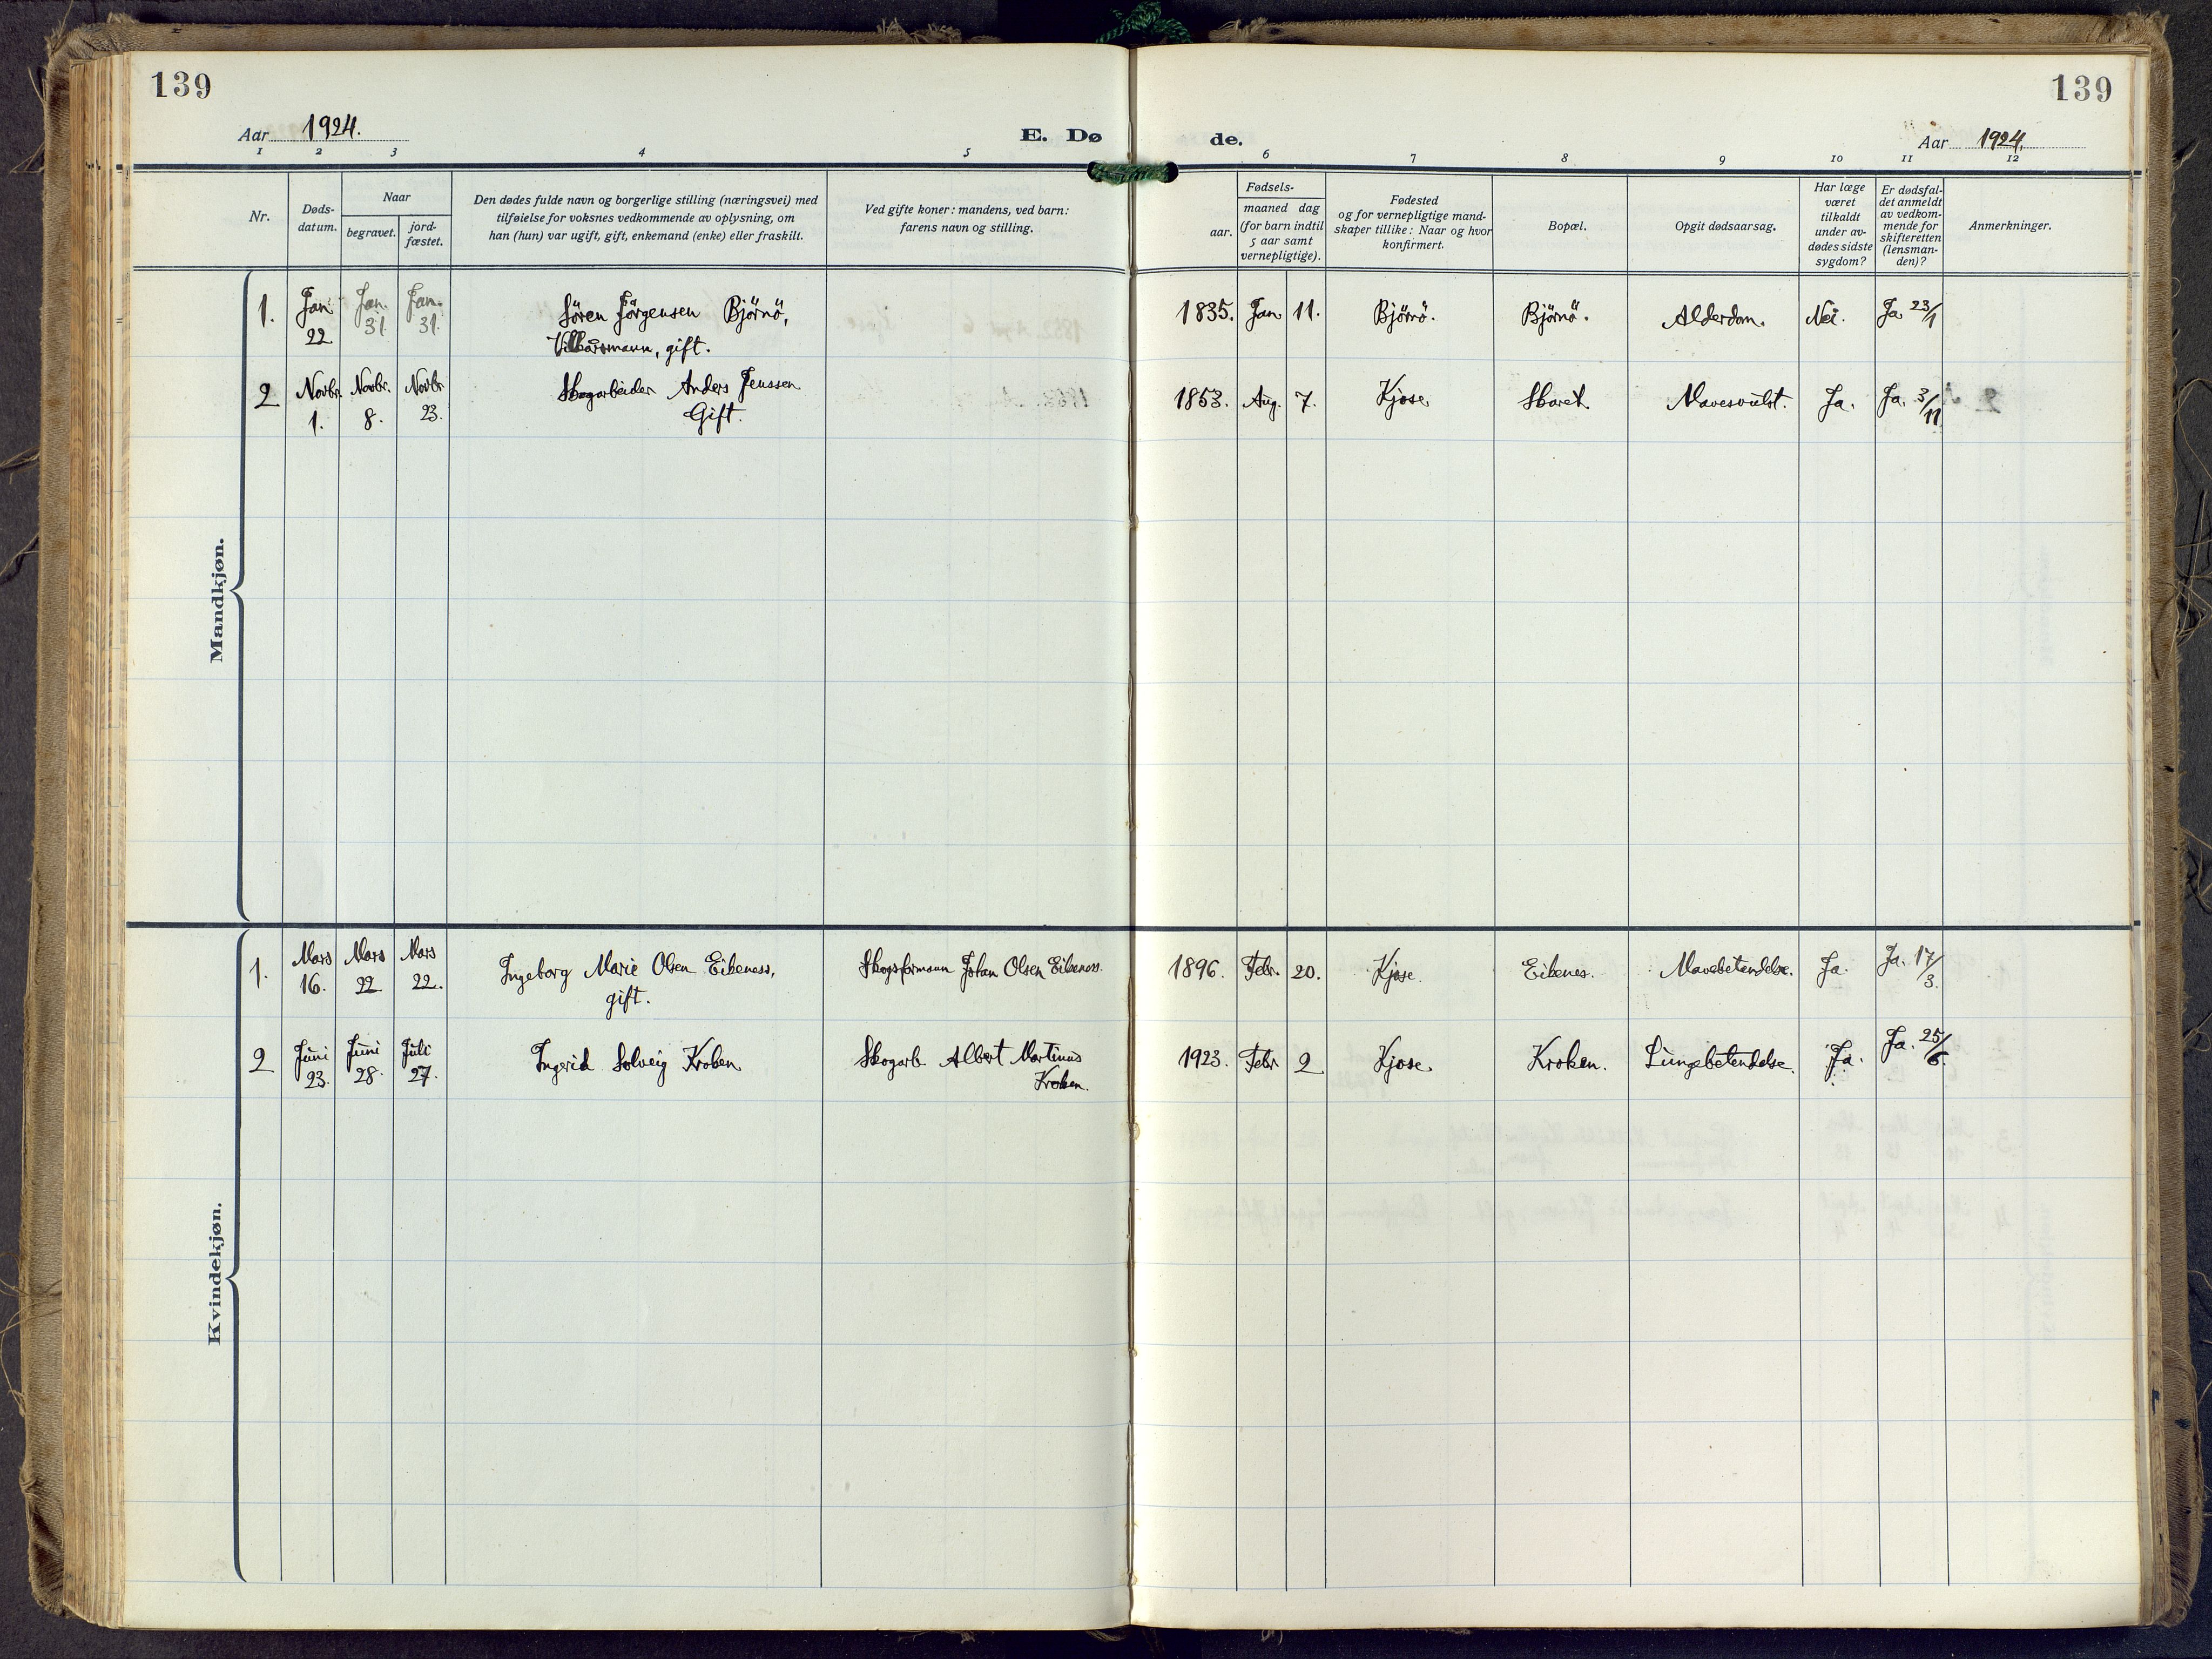 139
139
Aar 1924.
E. Døde.
Aar 1924.
1 2 3 4 5 6 7 8 9 10 11 12
Nr.
Døds-
datum.
Naar
begravet.
jord-
fæstet.
Den dødes fulde navn og borgerlige stilling (næringsvei) med
tilføielse for voksnes vedkommende av oplysning, om
han (hun) var ugift, gift, enkemand (enke) eller fraskilt.
Ved gifte koner: mandens, ved barn:
farens navn og stilling.
Fødsels-
aar.
maaned dag
(for barn indtil
5 aar samt
vernepligtige).
Fødested
og for vernepligtige mand-
skaper tillike: Naar og hvor
konfirmert.
Bopæl.
Opgit dødsaarsag.
Har læge
været
tilkaldt
under av-
dødes sidste
sygdom?
Er dødsfal-
det anmeldt
av vedkom-
mende for
skifteretten
(lensman-
den)?
Anmerkninger.
Mandkjøn.
1. Jan 22 Jan. 31 Jan. 31. Sören Jörgensen Björnö, 1835. Jan 11. Björnö. Björnö. Alderdom. Nei. Ja 23/1
gift.
2 Novbr. 1. Novbr. 8. Novbr 23. Skogarbeider Anders Jenssen 1853. Aug. 7. Kjose Skaret. Mavesvulst. Ja. Ja. 3/11
Gift.
Kvindekjøn.
1. Mars 16. Mars 22 Mars 22. Ingeborg Marie Olsen Eikeness, Skogsformann Johan Olsen Eikeness. 1896. Febr. 20. Kjose. Eikenes. Mavebetendelse. Ja. Ja. 17/3.
gift.
2 Juni 23. Juni 28. Juli 27. Ingerid Solveig Kroken Skogarb. Albert Martinus 1923. Febr 2 Kjose Kroken. Lungebetendelse. Ja. Ja. 25/6.
Kroken.